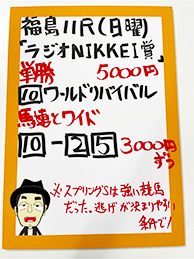 福島11R(日曜)
「ラジオNIKKEI賞」
単勝
5000円
10 ワールドリバイバル
馬連とワイド
10-25 3000円
ずつ
※スプリングSは強い競馬
だった。逃げが決まりやすい
条件で!